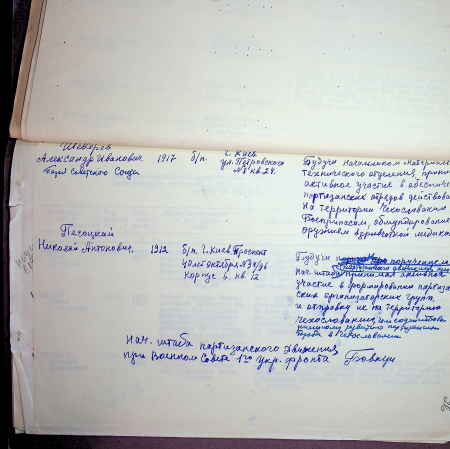 Шеверев
Александр Иванович. 1917 б/п. г. Киев
ул. Петровского
Герой Советского Союза
№ 8 кв. 24.
Будучи начальником материаль
технического отделения, прини
активное участие в обеспече
партизанских отрядов действова
на территории Чехословакии
боеприпасами обмундирование
оружием взрывчаткой медика
Песоцкий
Николай Антонович. 1912 б/п. г. Киев, Проспект
40 лет Октября № 34/96
Корпус 6. кв. 12
Будучи поручением
нач. штаба принимал активное
участие в формировании партиза
ских организаторских групп
и отправку их на территорию
Чехословакии,
в Чехословакии
Нач. штаба партизанского движения
при Военном Совете 1го Укр. фронта